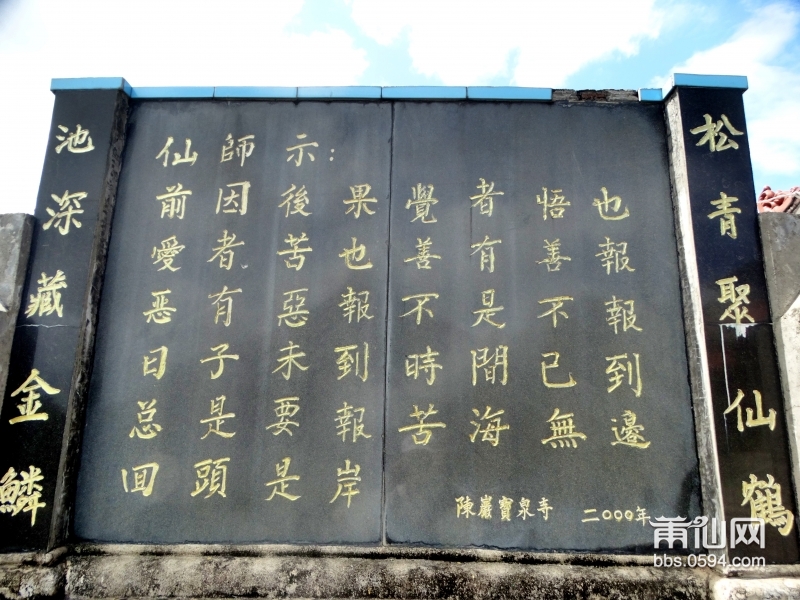 松青聚仙鶴
池深藏金鱗
仙師示:
前因後果覺者悟也
愛者苦也善有善報
恶有惡報不是不報
日子未到時間已到
总是要報苦海無邊
回頭是岸
陳巖寶泉寺 二〇〇〇年
莆仙网
bbs.0594.com